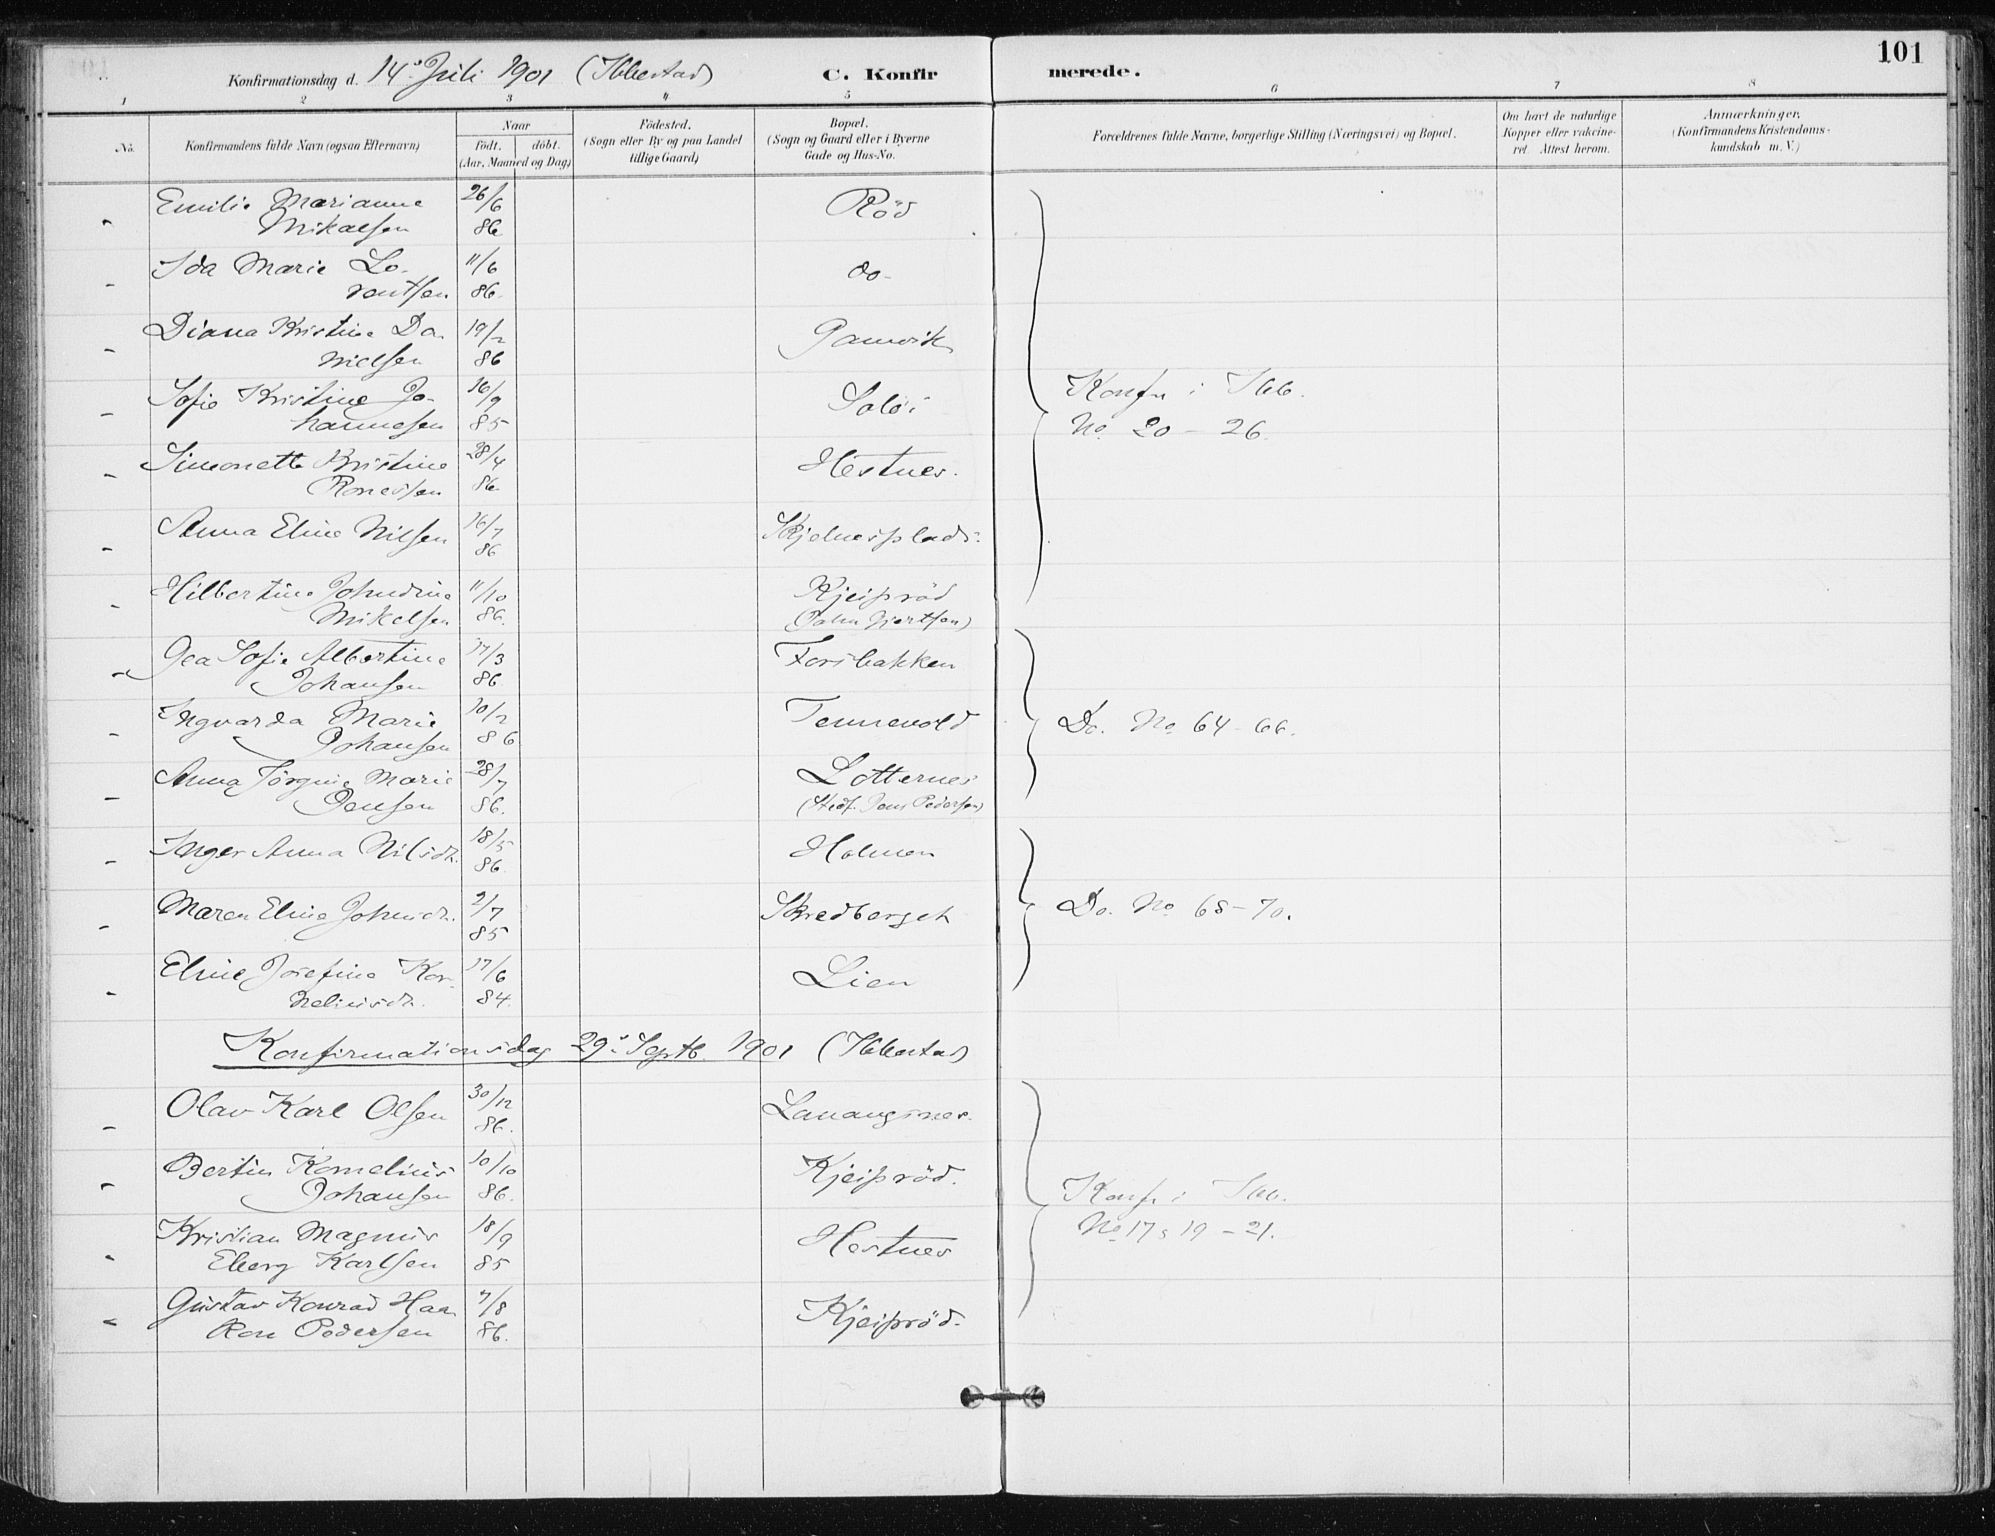 101
Konfirmationsdag d. 14de Juli 1901 (Ibbestad) C. Konfirmerede.
1 2 3 4 5 6 7 8
No. Konfirmandens fulde Navn (ogsaa Efternavn) Naar Födt. döbt. (Aar, Maaned og Dag) Födested. (Sogn eller By og paa Landet tillige Gaard) Bopæl. (Sogn og Gaard eller i Byerne Gade og Hus-No. Forældrenes fulde Navne, borgerlige Stilling (Næringsvei) og Bopæl. Om havt de naturlige Kopper eller vakcineret. Attest herom. Anmærkninger. (Konfirmandens Kristendomskundskab m. V.)
- Emilie Marianne 26/6 Röd
Mikalsen 86
- Ida Marie Lo- 11/6 do-
rentsen 86.
- Diana Kristine Da- 19/2 Gamvik
nielsen 86
- Sofie Kristine Jo- 16/9 Salöi
hannesen 85
Konfr i Ibb.
No. 20 - 26.
- Simonette Kristine 28/4 Hestnes.
Ronessen 86
- Anna Eline Nilsen 16/7 Skjelnesplads.
86
- Hilbertine Johndine 11/10 Kjeipröd
Mikelsen 86. (John Hjertsen)
- Gea Sofie Albertine 17/3 Forsbakken
Johansen 86
- Ingvarda Marie 10/2 Tennevold
Johansen 86
Do. No 64 - 66.
- Anna Jörgine Marie 28/7 Lotternes
Jensen 86. (Stedf. Jens Pedersen)
- Inger Anna Nilsdtr. 18/5 Holmen
86.
- Maren Eline Johnsdtr. 2/7 Skredberget
85
Do. No 68 - 70.
- Eline Josefine Kor- 17/6 Lien
neliusdtr. 84.
Konfirmationsdag 29de Septb. 1901 (Ibbestad)
- Olav Karl Olsen 30/12 Lavangsnes.
86.
- Bertin Kornelius 10/10 Kjeipröd.
Johansen 86.
Konfr i Ibb.
No 17, 19 - 21.
- Kristian Magnus 18/9 Hestnes
Eberg Karlsen 85
- Gustav Konrad Haa- 7/8 Kjeipröd.
kon Pedersen 86.